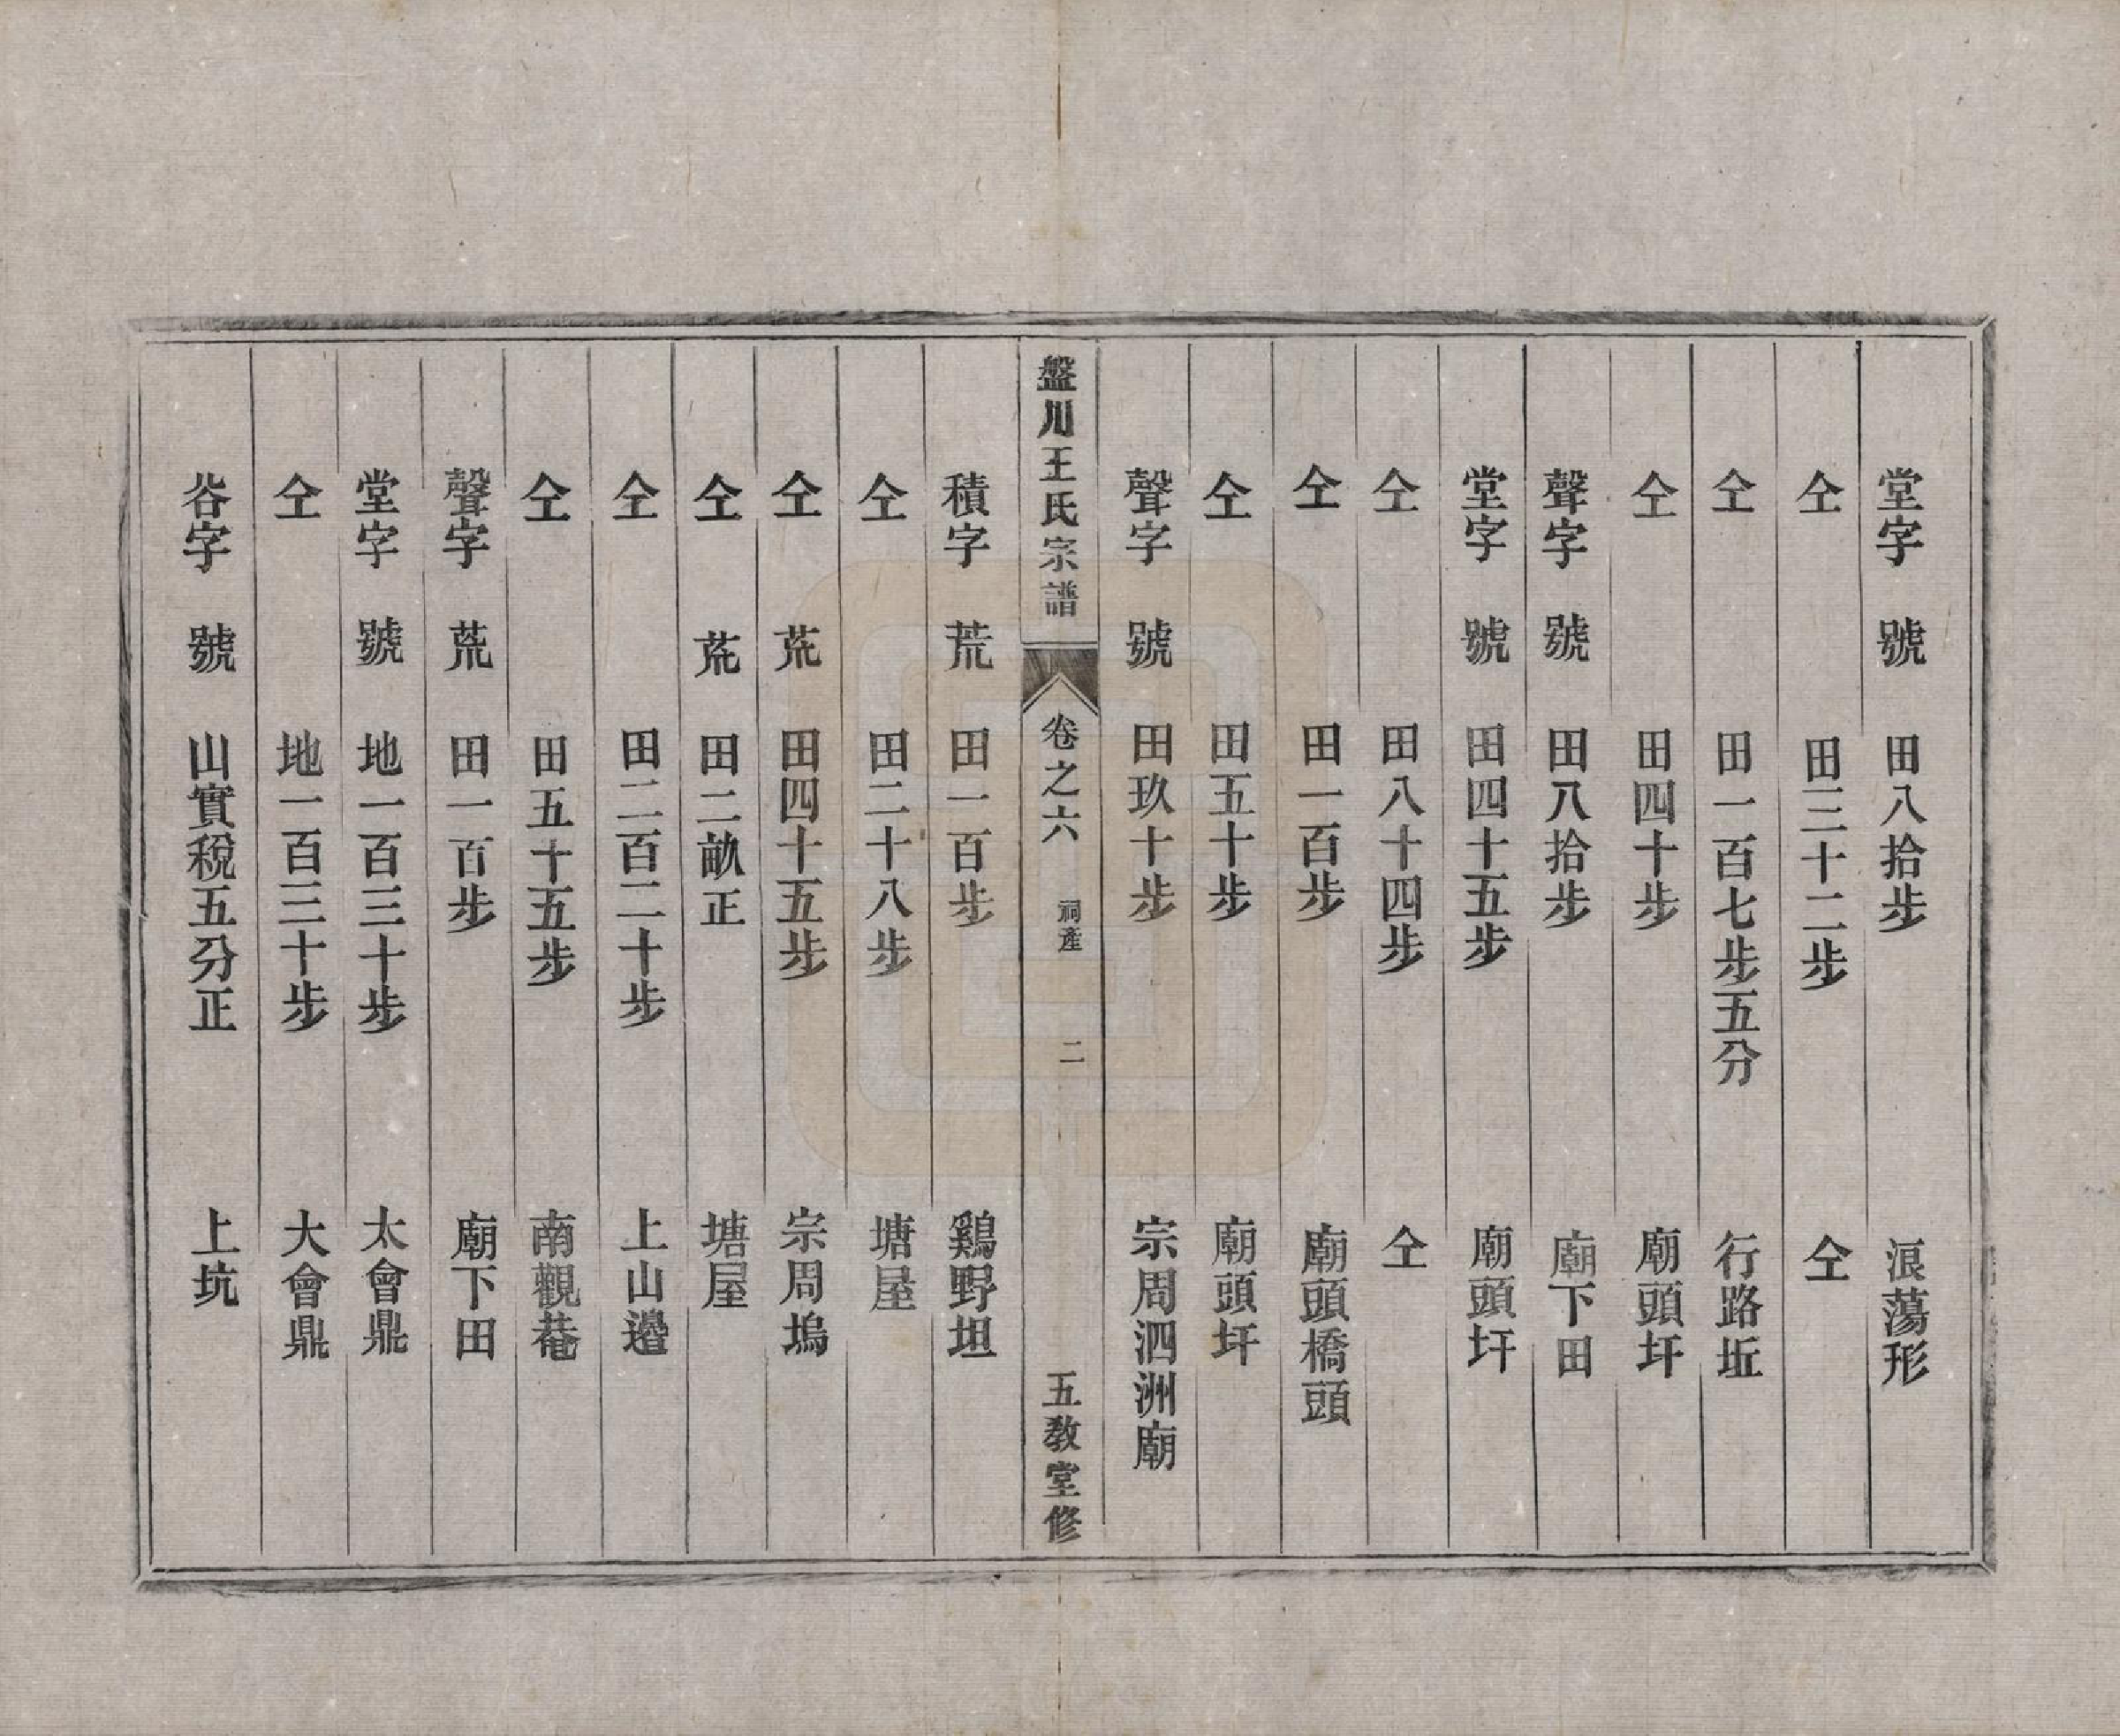 堂字 號 田八拾步 浪蕩形
仝 田三十二步 仝
仝 田一百七步五分 行路坵
仝 田四十步 廟頭圩
聲字 號 田八拾步 廟下田
堂字 號 田四十五步 廟頭圩
仝 田八十四步 仝
仝 田一百步 廟頭橋頭
仝 田五十步 廟頭圩
聲字 號 田玖十步 宗周泗洲廟
盤川王氏宗譜 卷之六 祠產 二 五教堂修
積字 荒 田一百步 鷄野坦
仝 田二十八步 塘屋
仝 荒 田四十五步 宗周塢
仝 荒 田二畝正 塘屋
仝 田二百二十步 上山邊
仝 田五十五步 南觀菴
聲字 荒 田一百步 廟下田
堂字 號 地一百三十步 太會鼎
仝 地一百三十步 大會鼎
谷字 號 山實稅五分正 上坑